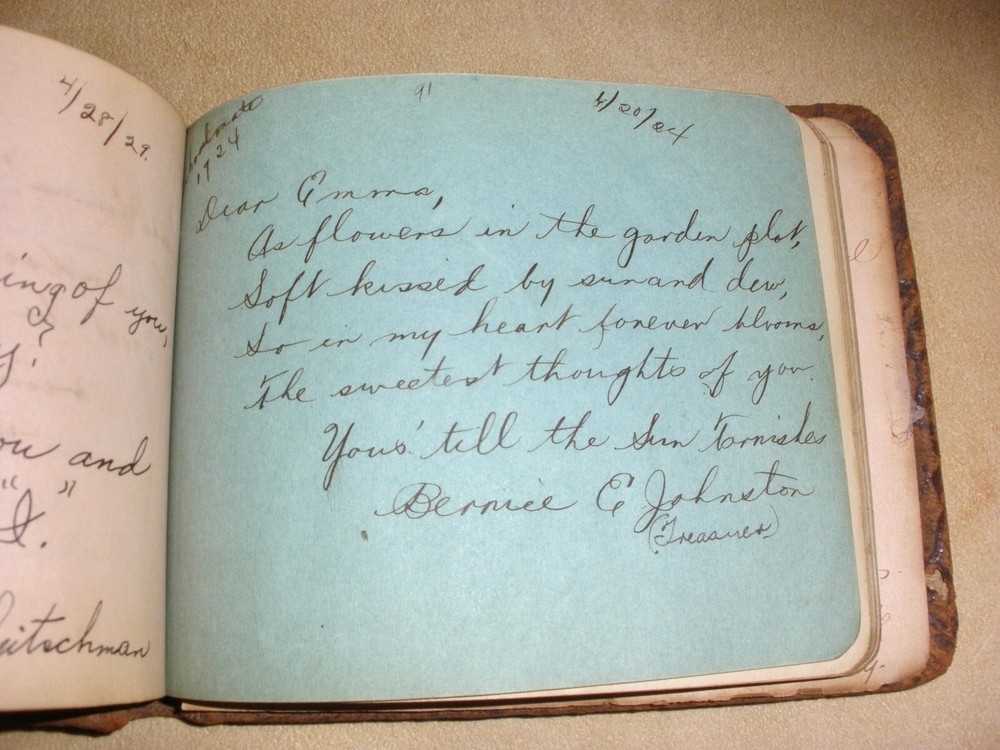 4/28/29.
ing of you,
y.
ou and
" "
I.
eitschman
1924
91
4/20/24
Dear Emma,
As flowers in the garden plot,
Soft kissed by sun and dew,
So in my heart forever blooms,
The sweetest thoughts of you.
Yous' till the Sun Tarnishes
Bernice E Johnston
(Treasurer)